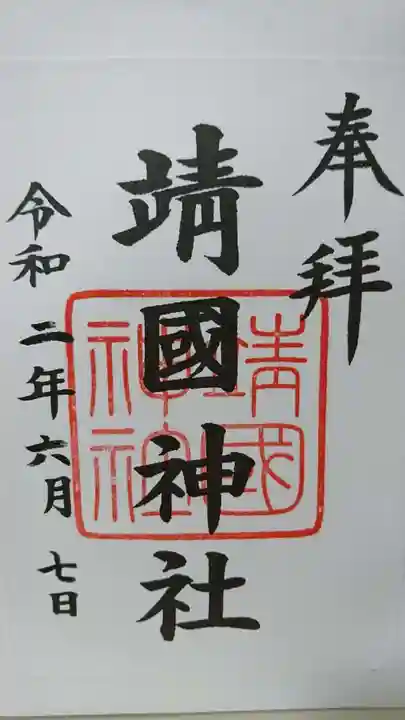 奉拝
靖國神社
靖國
神社
令和二年六月七日